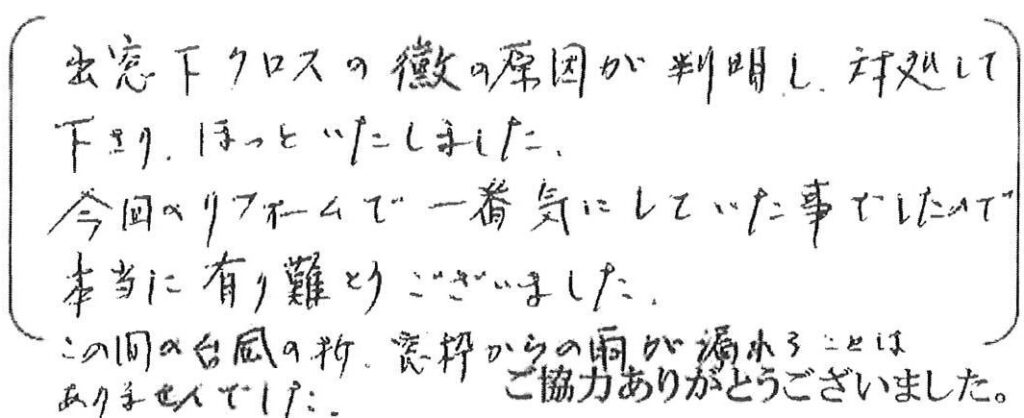 出窓下クロスの黴の原因が判明し、対処して
下さり、ほっといたしました、
今回のリフォームで一番気にしていた事でしたので
本当に有り難とうございました、
この間の台風の折、窓枠からの雨が漏れることは
ありませんでした。
ご協力ありがとうございました。